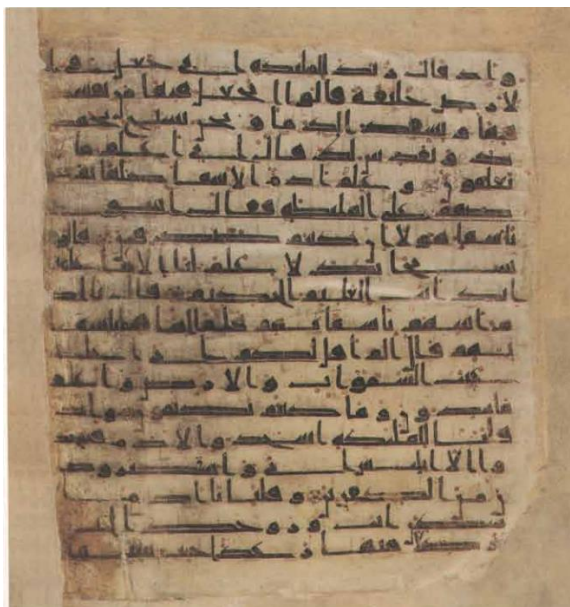 واذ قال ربك للملئكة انى جعل فى ا
لارض خليفة قالوا اتجعل فيها من يفسد
فيها ويسفك الدما ونحن نسبح بحمد
ك ونقدس لك قال انى اعلم ما لا
تعلمون وعلم ادم الاسما كلها ثم عر
ضهم على الملئكة فقال انبونى
باسما هولا ان كنتم صدقين قالوا
سبحنك لا علم لنا الا ما علمتنا
انك انت العليم الحكيم قال يادم
انبهم باسمائهم فلما انباهم باسما
ئهم قال الم اقل لكم انى اعلم
غيب السموات والارض واعلم
ما تبدون وما كنتم تكتمون واذ
قلنا للملئكة اسجدوا لادم فسجد
وا الا ابليس ابى واستكبر وكا
ن من الكفرين وقلنا يادم ا
سكن انت وزوجك الجنة
وكلا منها رغدا حيث شئتما